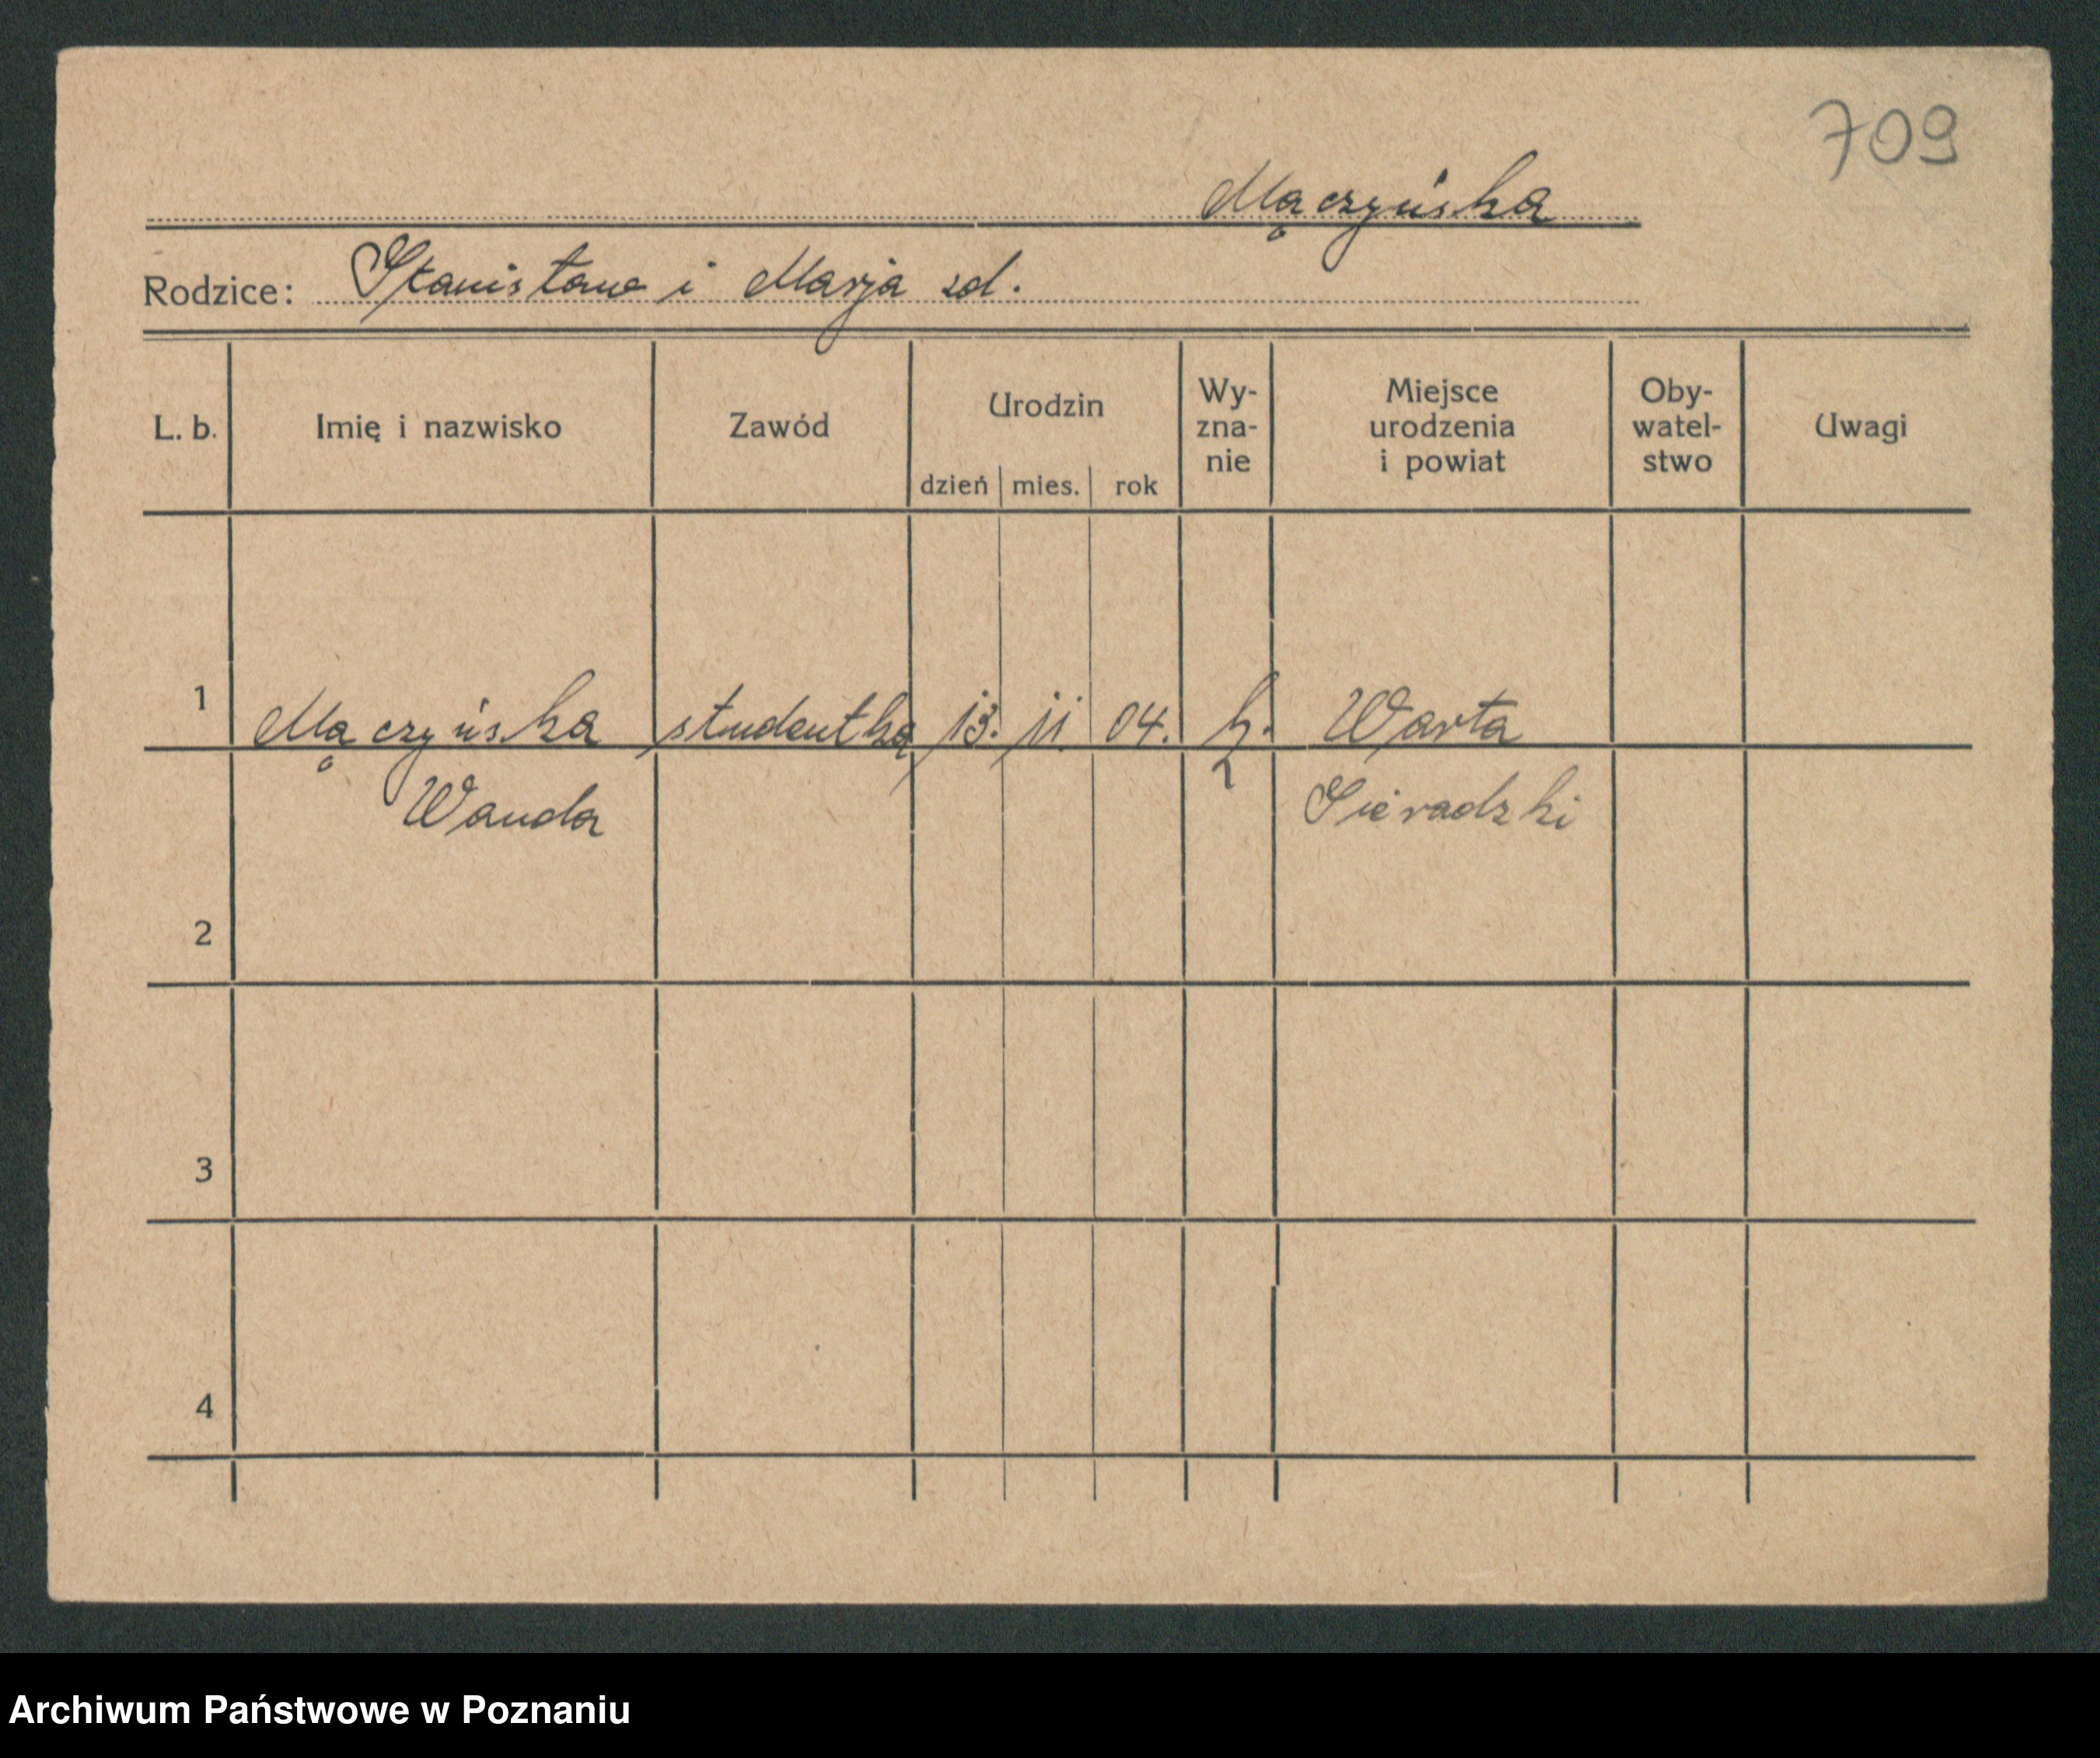 709
Mączyńska
Rodzice: Stanisław i Marja zd.
L. b. Imię i nazwisko Zawód Urodzin dzień mies. rok Wy-znanie Miejsce urodzenia i powiat Oby-watel-stwo Uwagi
1 Mączyńska studentka 13. 11. 04. k. Warta
Wanda Sieradzki
2
3
4
Archiwum Państwowe w Poznaniu